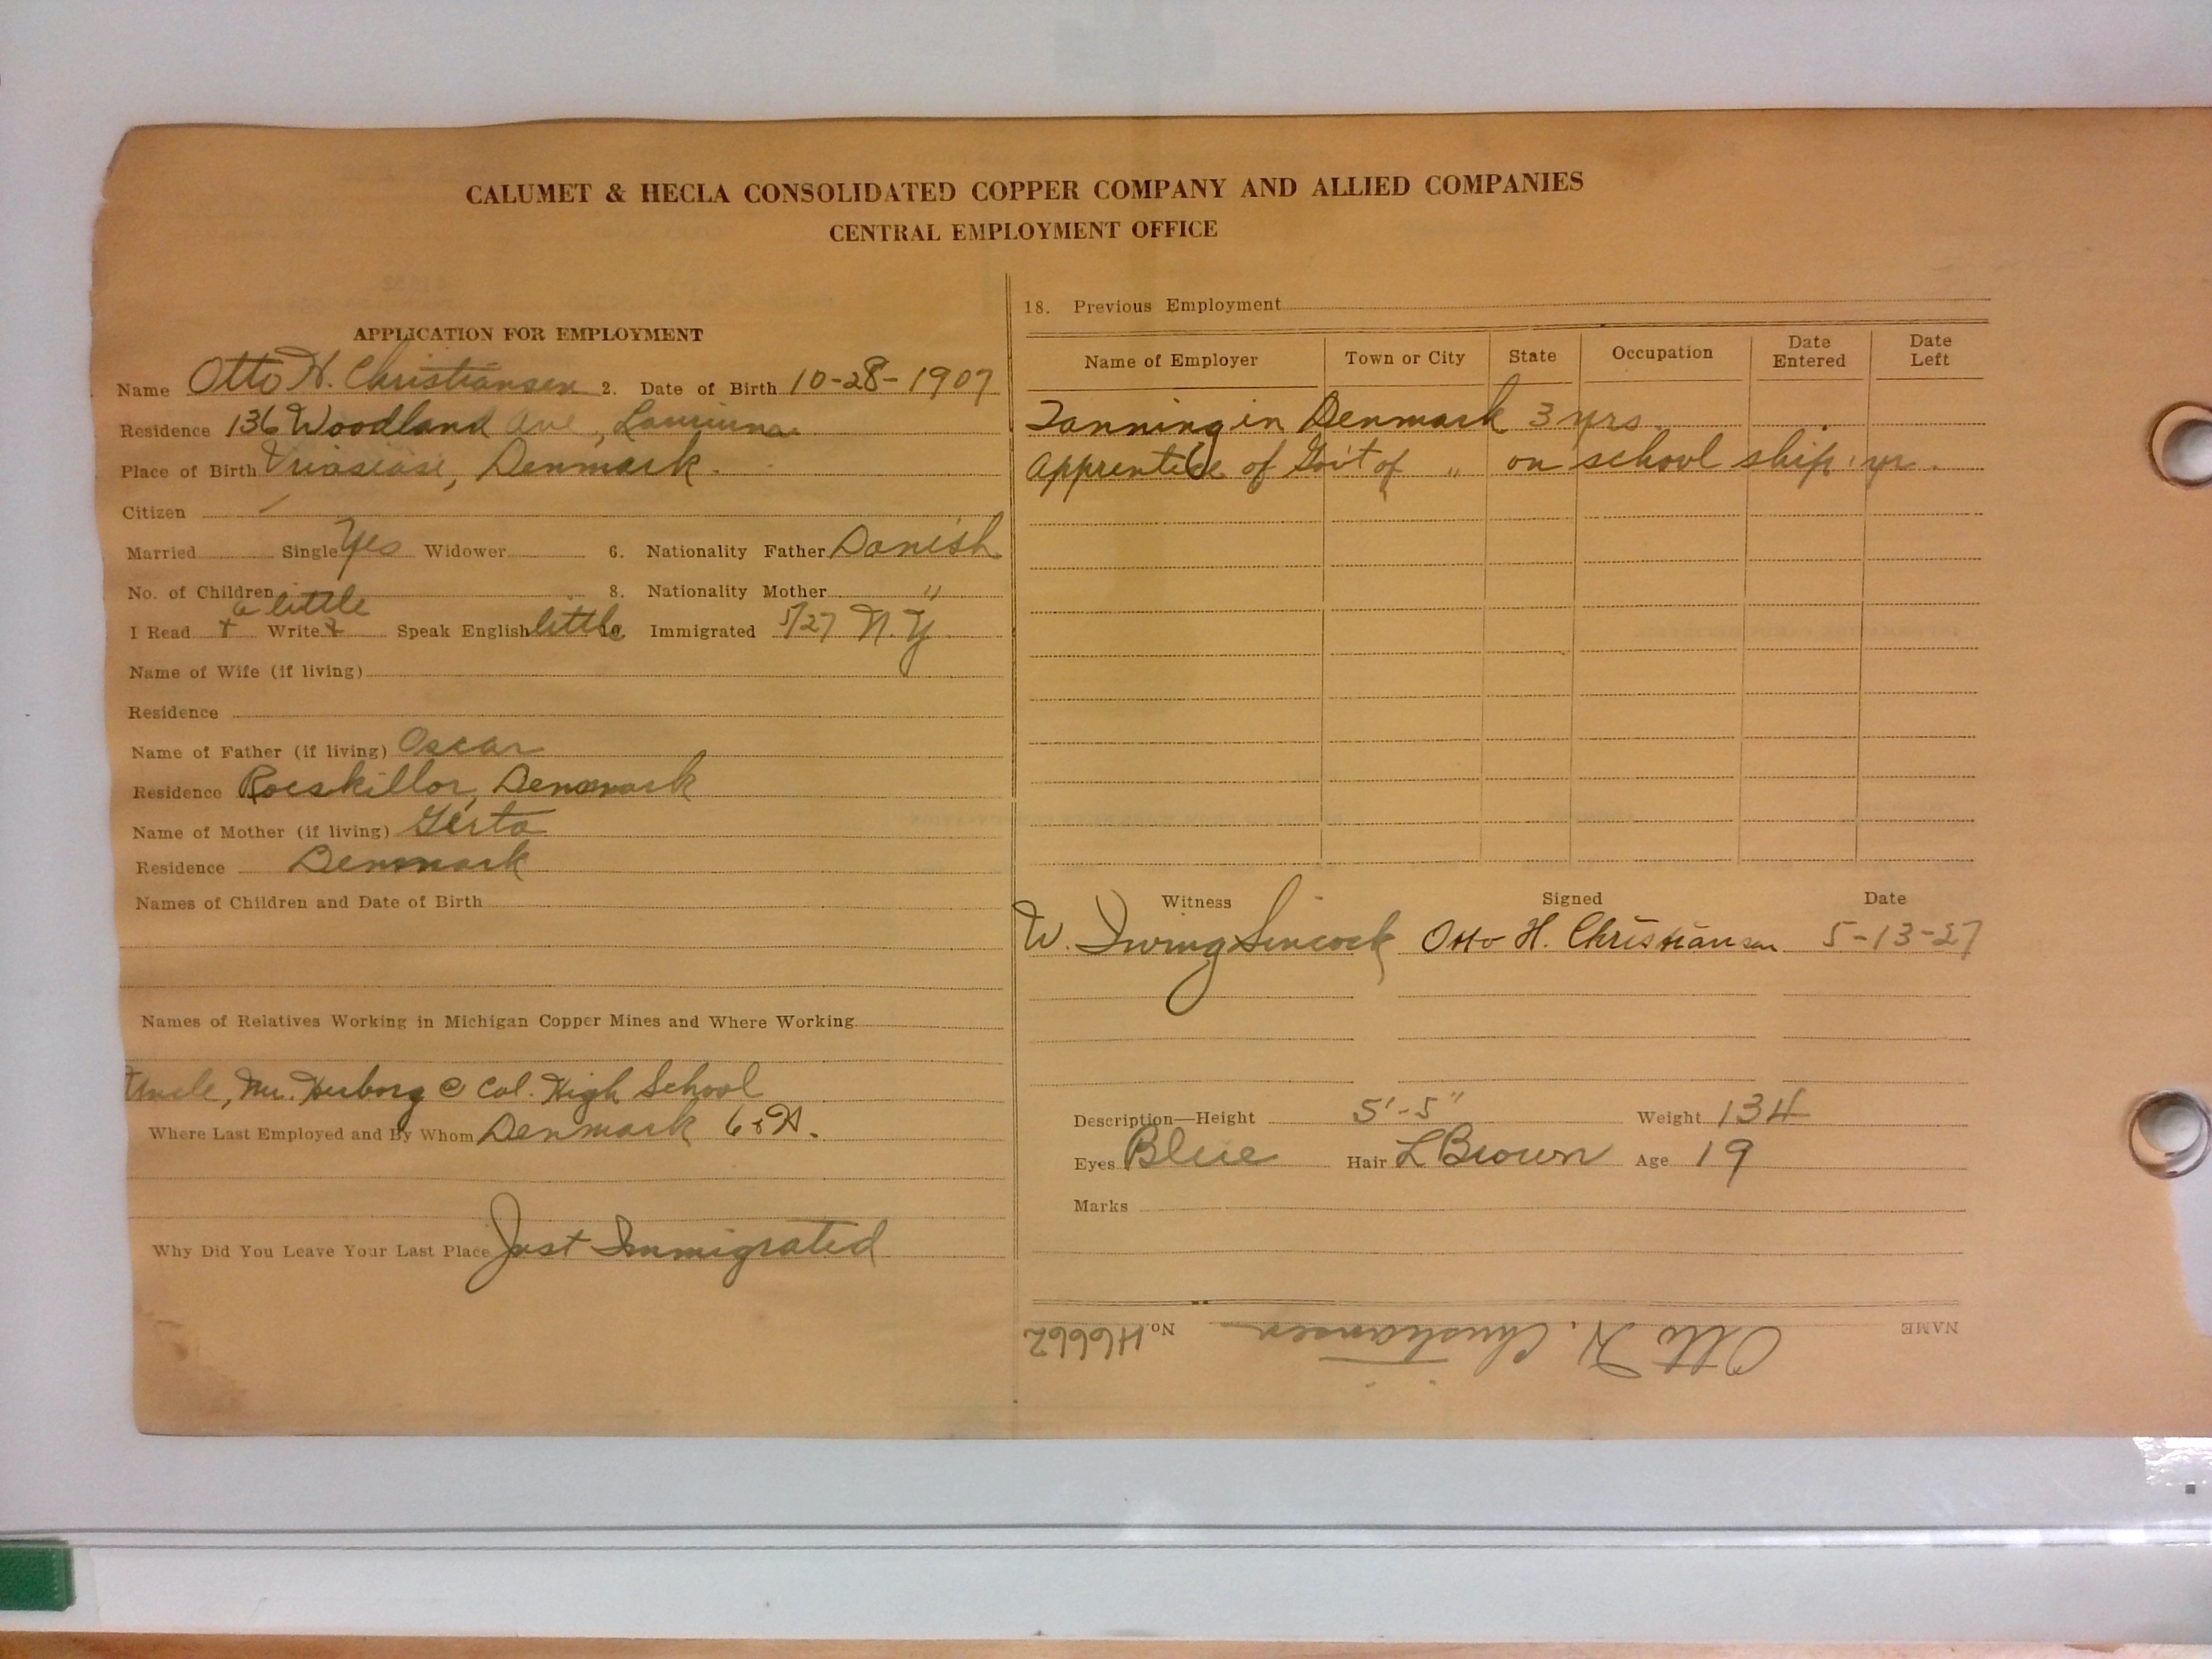 CALUMET & HECLA CONSOLIDATED COPPER COMPANY AND ALLIED COMPANIES
CENTRAL EMPLOYMENT OFFICE
APPLICATION FOR EMPLOYMENT
Name Otto H. Christiansen 2. Date of Birth 10-28-1907
Residence 136 Woodland Ave, Laurium
Place of Birth Denmark.
Citizen
Married Single Yes Widower 6. Nationality Father Danish
No. of Children 8. Nationality Mother "
a little
I Read x Write x Speak English little 10. Immigrated 5/27 N.Y
Name of Wife (if living)
Residence
Name of Father (if living) Oscar
Residence Roeskillor, Denmark
Name of Mother (if living) Gerta
Residence Denmark
Names of Children and Date of Birth
Names of Relatives Working in Michigan Copper Mines and Where Working
Uncle, Mr. Herborg @ Cal. High School
Where Last Employed and By Whom Denmark
Why Did You Leave Your Last Place Just Immigrated
18. Previous Employment
Name of Employer Town or City State Occupation Date Entered Date Left
Tanning in Denmark 3 yrs.
Apprentice of Gov't of " on school ship 1 yr.
Witness Signed Date
W. Irving Sincock Otto H. Christiansen 5-13-27
Description—Height 5'-5" Weight 134
Eyes Blue Hair L Brown Age 19
Marks
NAME Otto H. Christiansen No. H6662